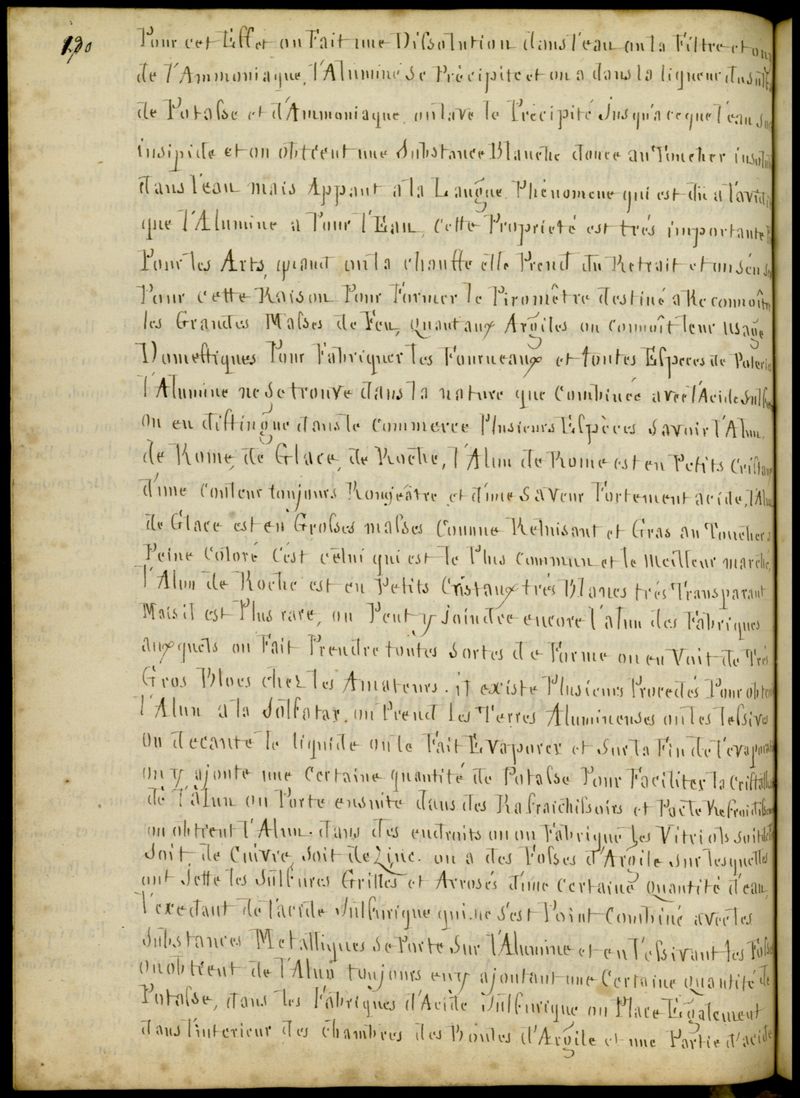 190
Pour cet Effet on Fait une Dissolution dans l'eau on la Filtre et on
de l'Ammoniaque, l'Alumine se Précipite et on a dans la liqueur du
de Potasse et d'Ammoniaque, on lave le Précipité Jusqu'a ce que l'eau
insipide et on obtient une Substance Blanche douce au Toucher
dans l'eau mais Appant a la Langue Phénomene qui est dû a
que l'Alumine a Pour l'Eau, Cette Proprieté est trés importante
Pour les Arts, quand on la chauffe elle Prend du Retrait et on
Pour cette Raison Pour Former le Piromêtre destiné a Reconnoître
les Grandes Masses de Feu, Quant aux Argiles on connoît leur usage
Domestiques Pour Fabriquer les Fourneaux et toutes Especes de Poterie
l'Alumine ne se trouve dans la nature que Combinée avec l'Acide
On en distingue dans le Commerce Plusieurs Espèces Savoir l'Alun
de Rome, de Glace, de Roche, l'Alun de Rome est en Petits
d'une Couleur toujours Rougeâtre et d'une Saveur Fortement acide,
de Glace est en Grosses masses Comme Reluisant et Gras au Toucher
Peine Coloré C'est celui qui est le Plus Commun et le meilleur marché,
l'Alun de Roche est en Petits Cristaux trés Blancs trés Transparant
Mais il est Plus rare, on Peut y Joindre encore l'alun des Fabriques
auxquels on Fait Prendre toutes Sortes de Forme on en Voit de Trés
Gros Blocs chez les Amateurs. il existe Plusieurs Procedés Pour
l'Alun a la Solfatar, on Prend les Terres Alumineuses on les lessive
On decante le liquide on le Fait Evaporer et Sur la Fin de l'evaporat
On y ajoute une Certaine quantité de Potasse Pour Faciliter la
de l'alun on Porte ensuite dans des Rafraichissoirs et Par le
on obtient l'Alun. dans des endroits ou on Fabrique les Vitriols Soit
Soit de Cuivre, Soit de Zinc. on a des Fosses d'Argile Sur lesquelles
ont Jette les Sulfures Grillés et Arrosés d'une Certaine Quantité d'eau,
l'excedant de l'acide Sulfurique qui ne s'est Point Combiné avec les
Substances Metalliques se Porte Sur l'Alumine et en lessivant les
on obtient de l'Alun toujours en y ajoutant une Certaine quantité de
Potasse, dans les Fabriques d'Acide Sulfurique on Place Egalement
dans l'interieur des chambres des Boules d'Argile et une Partie d'acide